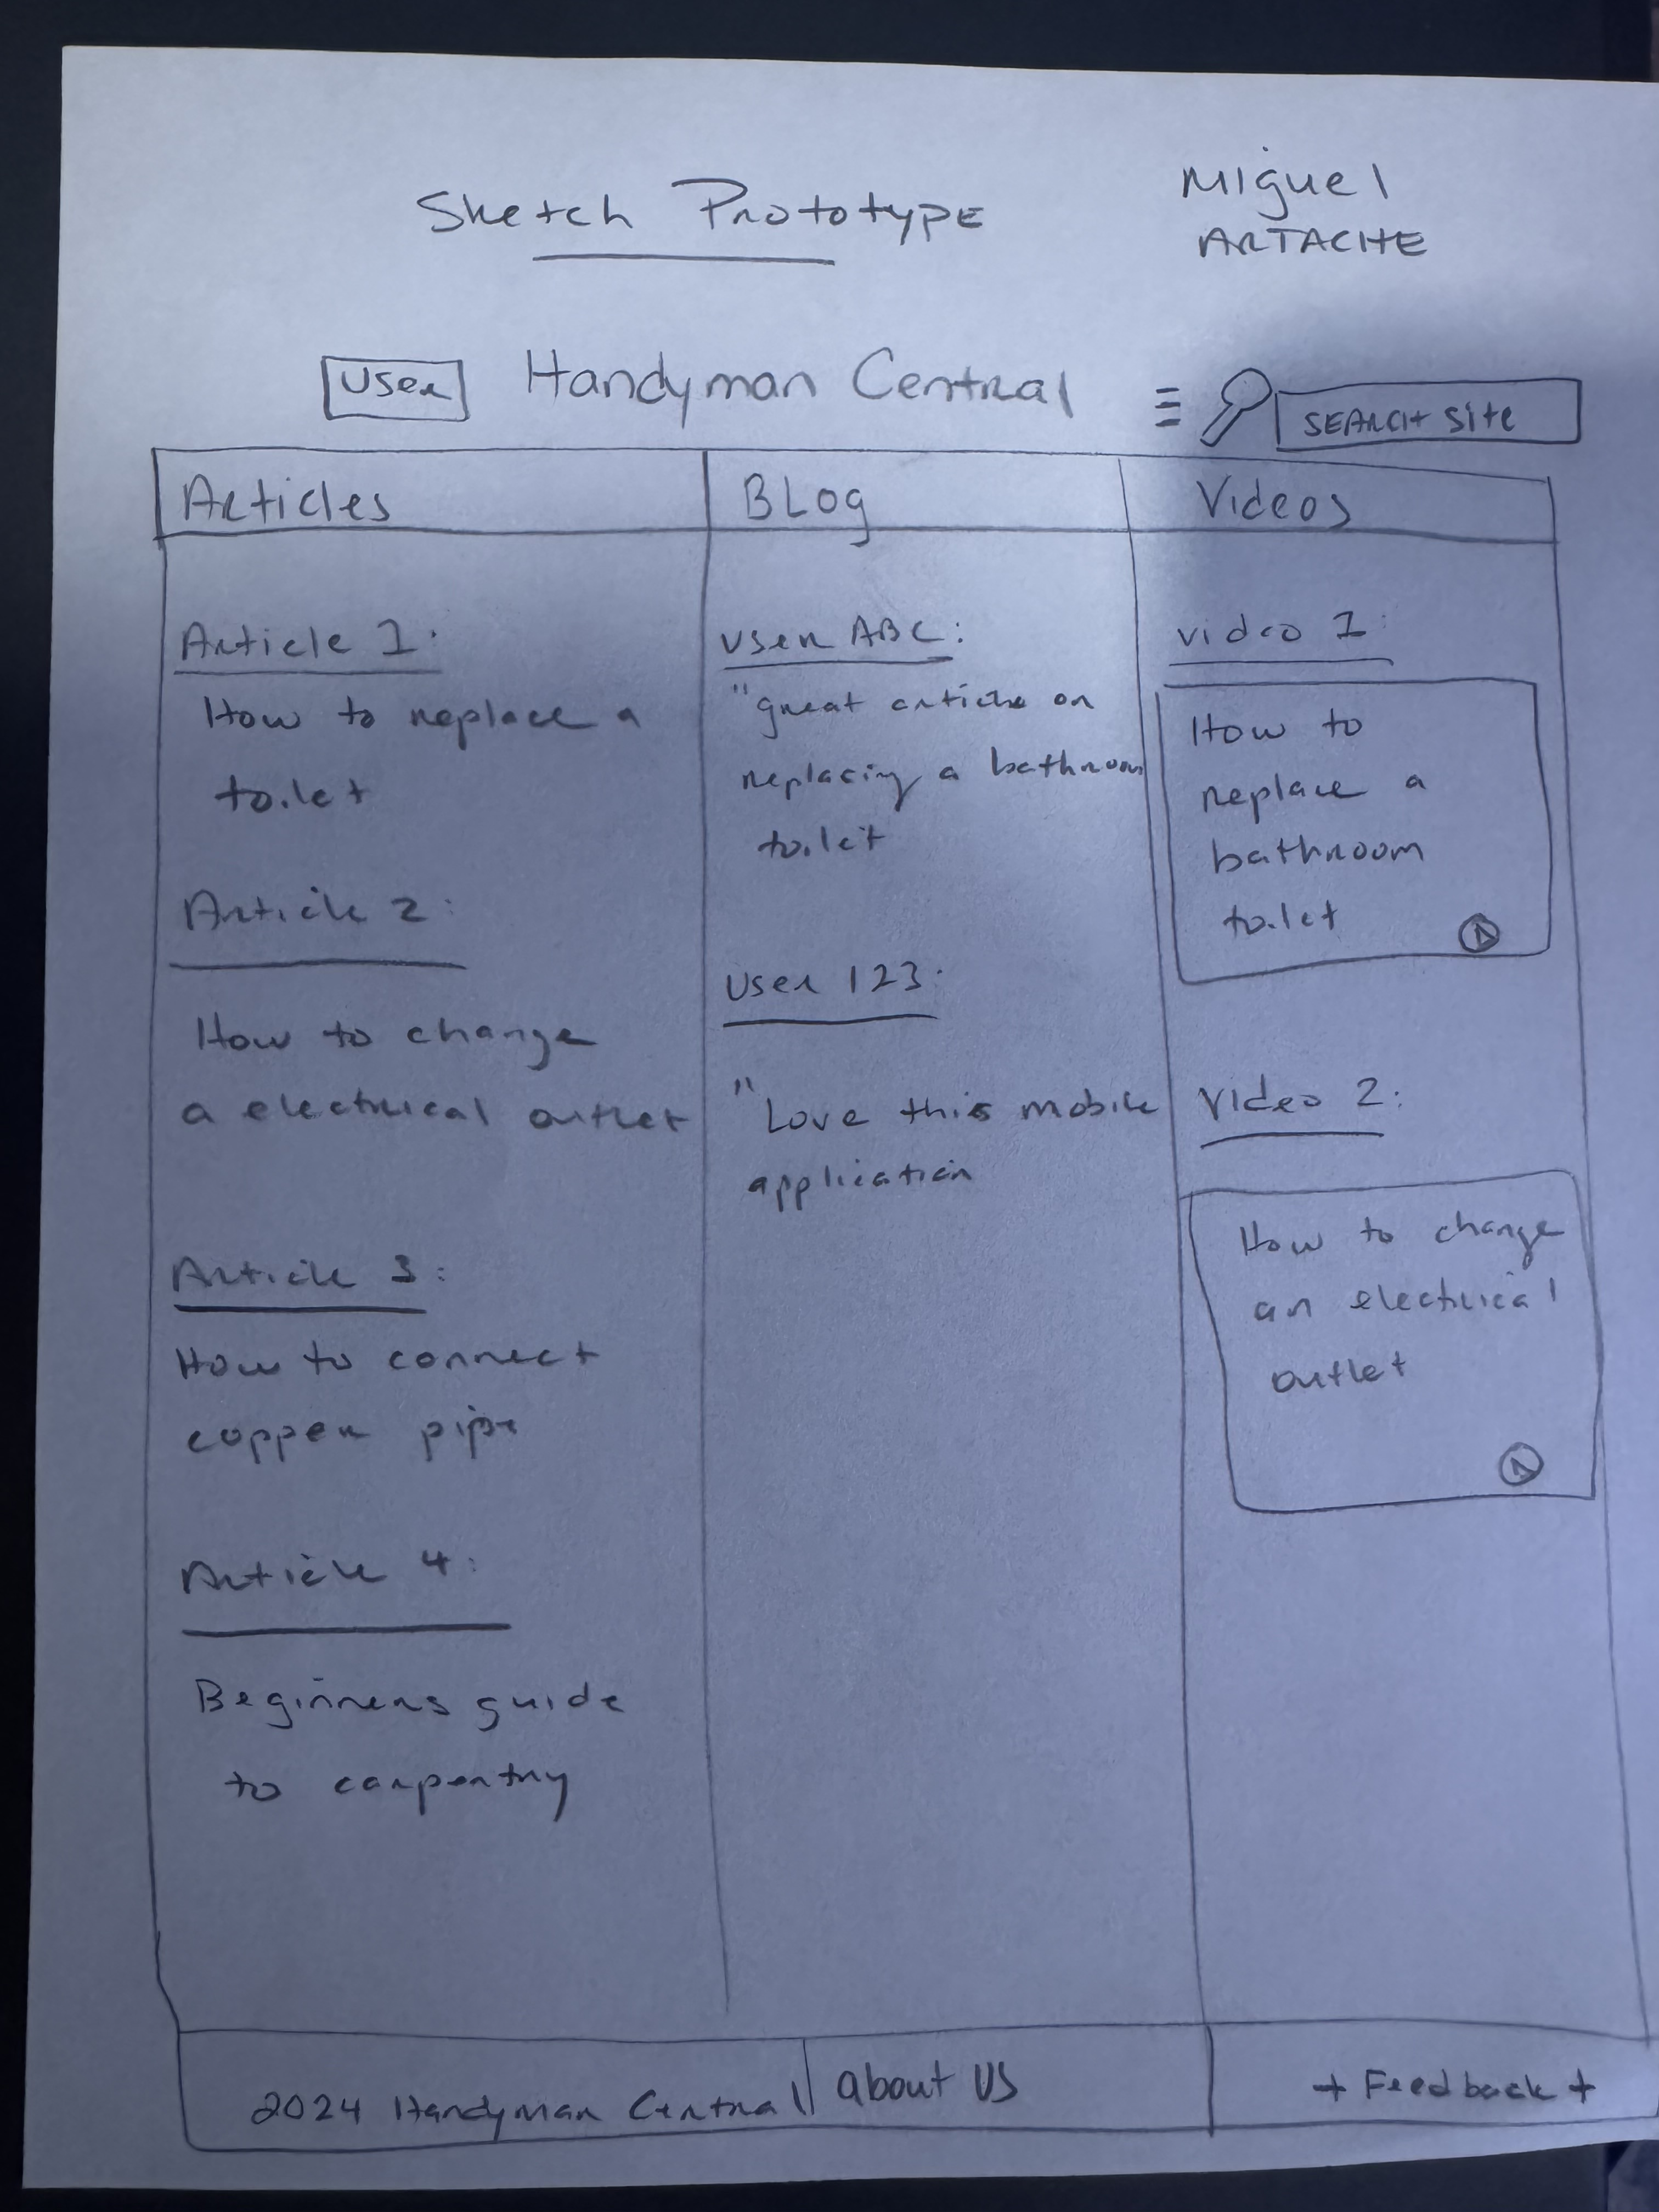 Sketch Prototype
Miguel
ARTACHE
User
Handyman Central
SEARCH Site
Articles
BLog
Videos
Article 1:
How to replace a
toilet
Article 2:
How to change
a electrical outlet
Article 3:
How to connect
copper pipe
Article 4:
Beginners guide
to carpentry
User ABC:
"great article on
replacing a bathroom
toilet
User 123:
"Love this mobile
application
video 1:
How to
replace a
bathroom
toilet
Video 2:
How to change
an electrical
outlet
2024 Handyman Central
about US
+ Feedback +